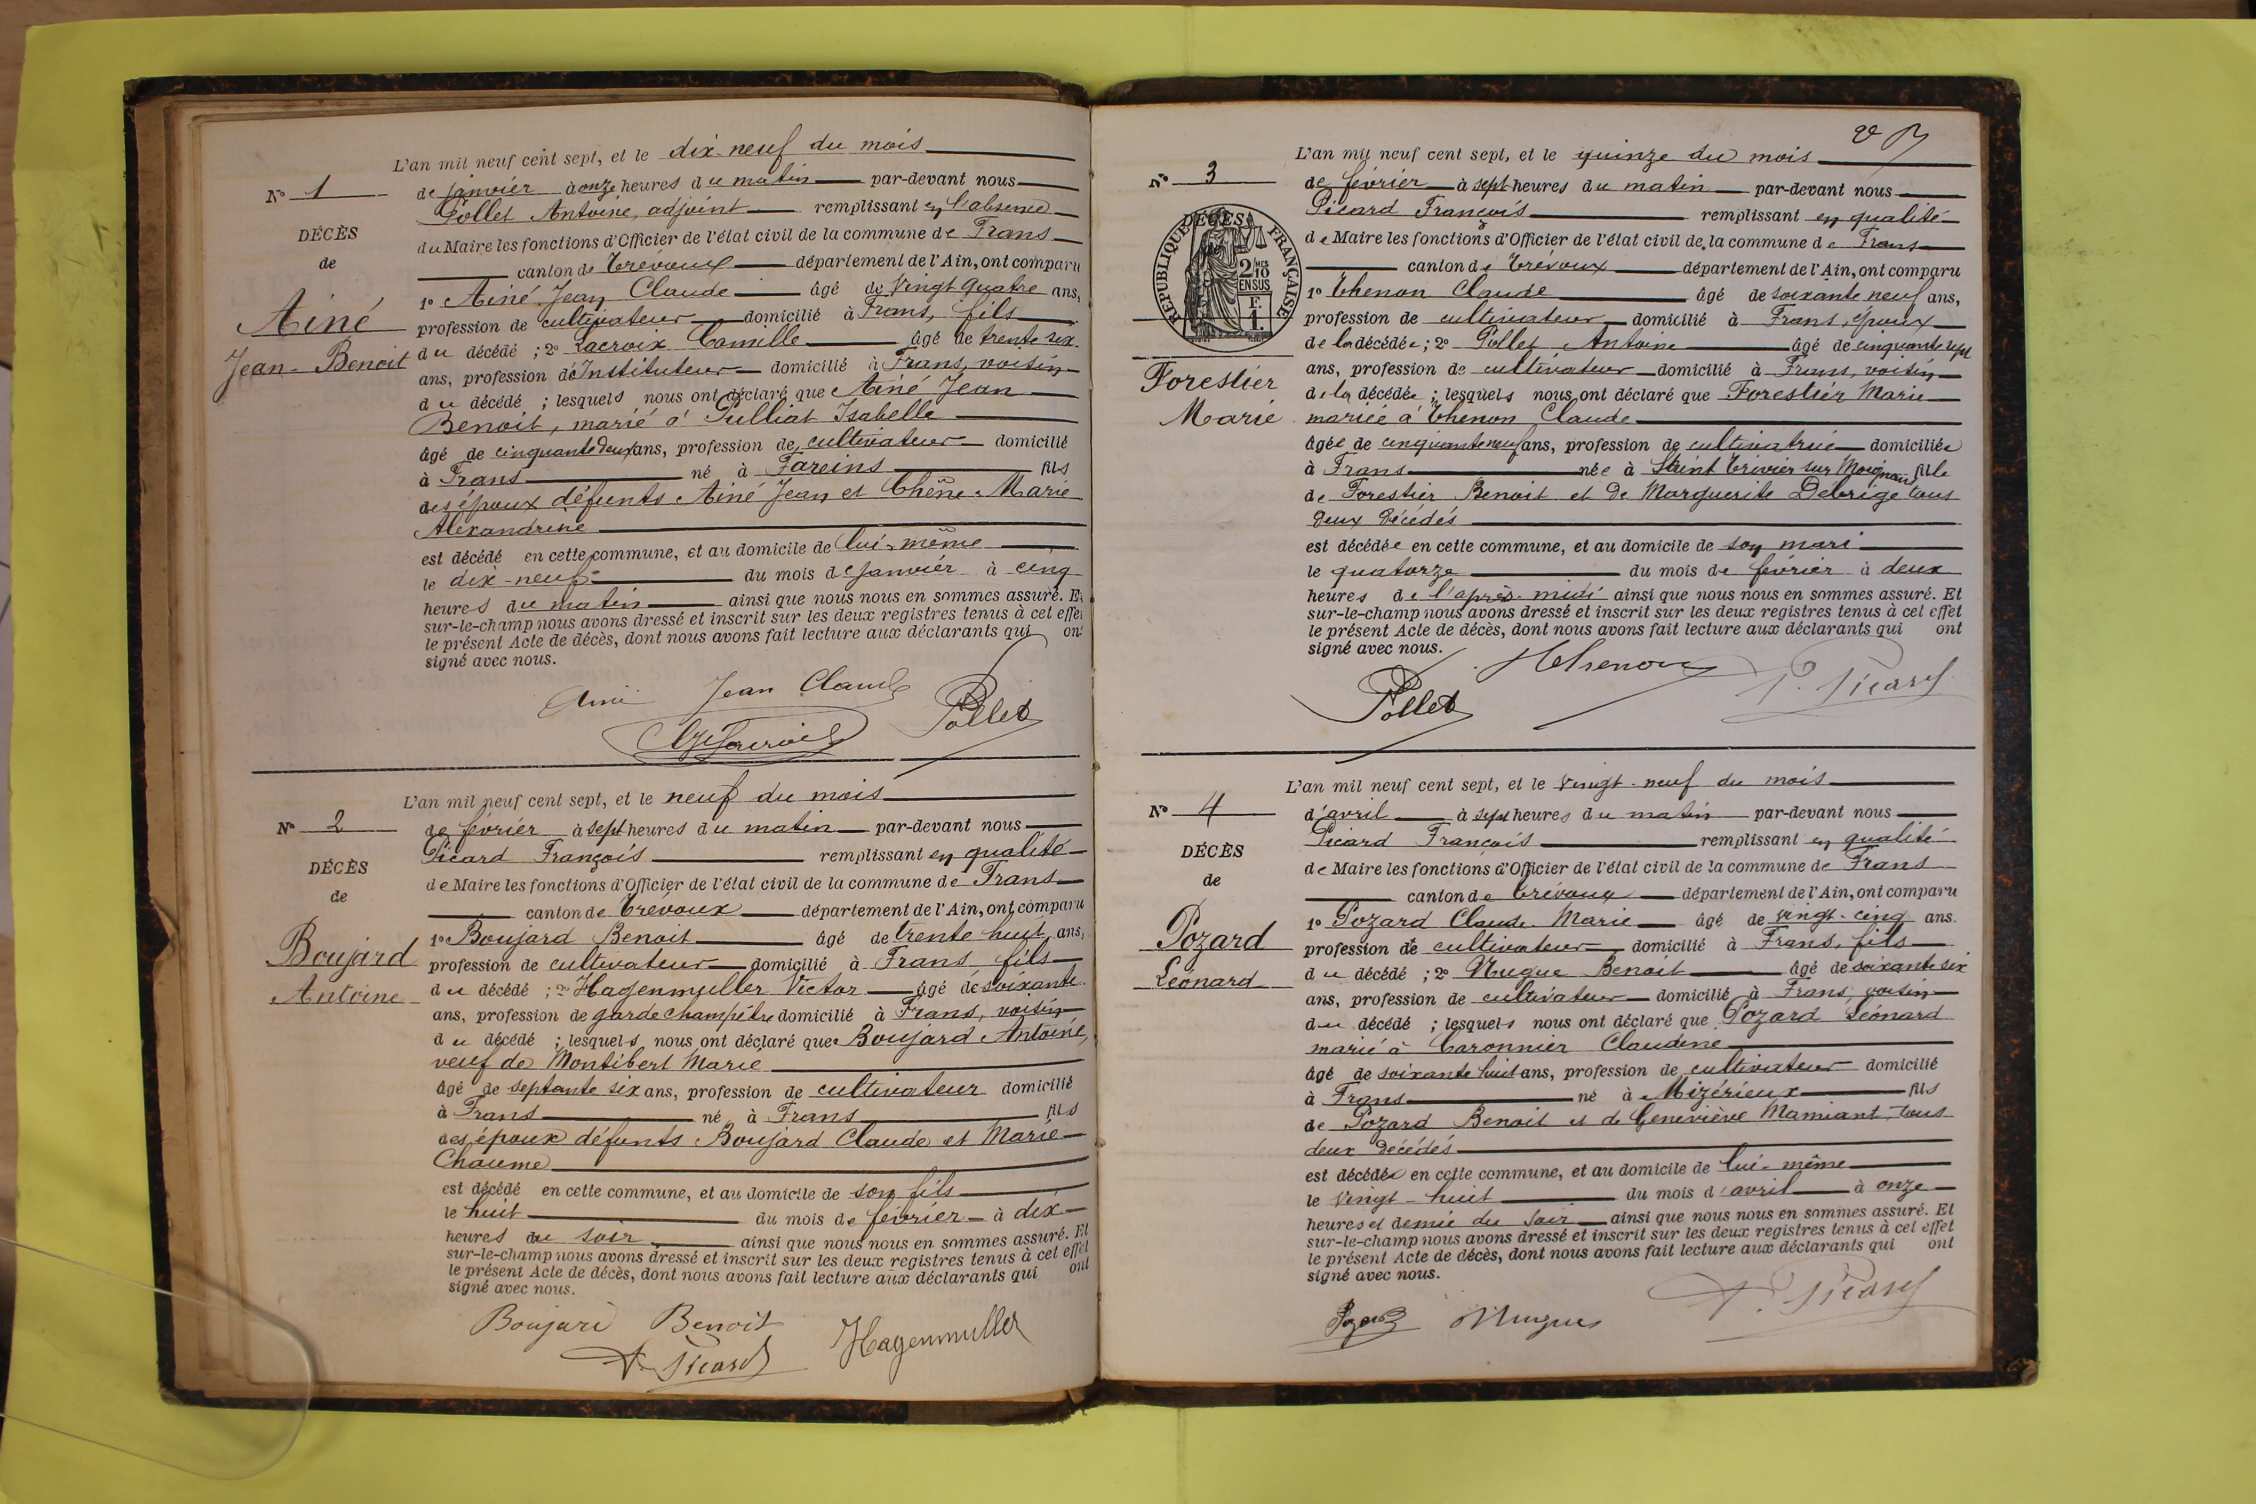 L'an mil neuf cent sept, et le dix-neuf du mois
N° 1
de janvier à onze heures du matin par-devant nous
Pollet Antoine, adjoint remplissant en l'absence
DÉCÈS
du Maire les fonctions d'Officier de l'état civil de la commune de Frans
de
canton de Trévoux département de l'Ain, ont comparu
Ainé
Jean-Benoit
1° Ainé Jean Claude âgé de vingt quatre ans,
profession de cultivateur domicilié à Frans, fils
du décédé ; 2° Lacroix Camille âgé de trente six
ans, profession d'Instituteur domicilié à Frans, voisin
du décédé ; lesquels nous ont déclaré que Ainé Jean
Benoit, marié à Pulliat Isabelle
âgé de cinquante deux ans, profession de cultivateur domicilié
à Frans né à Fareins fils
des époux défunts Ainé Jean et Chêne Marie
Alexandrine
est décédé en cette commune, et au domicile de lui-même
le dix-neuf du mois de janvier à cinq
heures du matin ainsi que nous nous en sommes assuré. Et
sur-le-champ nous avons dressé et inscrit sur les deux registres tenus à cet effet
le présent Acte de décès, dont nous avons fait lecture aux déclarants qui ont
signé avec nous.
Ainé Jean Claude
Pollet
L'an mil neuf cent sept, et le neuf du mois
N° 2
de février à sept heures du matin par-devant nous
Picard François remplissant en qualité
DÉCÈS
de Maire les fonctions d'Officier de l'état civil de la commune de Frans
de
canton de Trévoux département de l'Ain, ont comparu
Boujard
Antoine
1° Boujard Benoit âgé de trente huit ans,
profession de cultivateur domicilié à Frans fils
du décédé ; 2° Hagenmuller Victor âgé de soixante
ans, profession de garde champêtre domicilié à Frans, voisin
du décédé ; lesquels nous ont déclaré que Boujard Antoine,
veuf de Montibert Marie
âgé de septante six ans, profession de cultivateur domicilié
à Frans né à Frans fils
des époux défunts Boujard Claude et Marie
Chaume
est décédé en cette commune, et au domicile de son fils
le huit du mois de février à dix
heures du soir ainsi que nous nous en sommes assuré. Et
sur-le-champ nous avons dressé et inscrit sur les deux registres tenus à cet effet
le présent Acte de décès, dont nous avons fait lecture aux déclarants qui ont
signé avec nous.
Boujard Benoit
Hagenmuller
F. Picard
L'an mil neuf cent sept, et le quinze du mois
N° 3
de février à sept heures du matin par-devant nous
Picard François remplissant en qualité
DÉCÈS
RÉPUBLIQUE FRANÇAISE
2/10 EN SUS
F. 1.
de Maire les fonctions d'Officier de l'état civil de la commune de Frans
canton de Trévoux département de l'Ain, ont comparu
Forestier
Marie
1° Thenon Claude âgé de soixante neuf ans,
profession de cultivateur domicilié à Frans, époux
de la décédée ; 2° Pollet Antoine âgé de cinquante sept
ans, profession de cultivateur domicilié à Frans, voisin
de la décédée ; lesquels nous ont déclaré que Forestier Marie
mariée à Thenon Claude
âgée de cinquante neuf ans, profession de cultivatrice domiciliée
à Frans née à Saint Trivier sur Moignans fille
de Forestier Benoit et de Marguerite Debrige tous
deux décédés
est décédée en cette commune, et au domicile de son mari
le quatorze du mois de février à deux
heures de l'après-midi ainsi que nous nous en sommes assuré. Et
sur-le-champ nous avons dressé et inscrit sur les deux registres tenus à cet effet
le présent Acte de décès, dont nous avons fait lecture aux déclarants qui ont
signé avec nous.
Thenon
Pollet
F. Picard
L'an mil neuf cent sept, et le vingt-neuf du mois
N° 4
d'avril à sept heures du matin par-devant nous
Picard François remplissant en qualité
DÉCÈS
de Maire les fonctions d'Officier de l'état civil de la commune de Frans
de
canton de Trévoux département de l'Ain, ont comparu
Pozard
Léonard
1° Pozard Claude Marie âgé de vingt-cinq ans.
profession de cultivateur domicilié à Frans, fils
du décédé ; 2° Mugue Benoit âgé de soixante six
ans, profession de cultivateur domicilié à Frans, voisin
du décédé ; lesquels nous ont déclaré que Pozard Léonard
marié à Caronnier Claudine
âgé de soixante huit ans, profession de cultivateur domicilié
à Frans né à Mizérieux fils
de Pozard Benoit et de Geneviève Mamiant, tous
deux décédés
est décédé en cette commune, et au domicile de lui-même
le vingt-huit du mois d'avril à onze
heures et demie du soir ainsi que nous nous en sommes assuré. Et
sur-le-champ nous avons dressé et inscrit sur les deux registres tenus à cet effet
le présent Acte de décès, dont nous avons fait lecture aux déclarants qui ont
signé avec nous.
Pozard Mugue
F. Picard